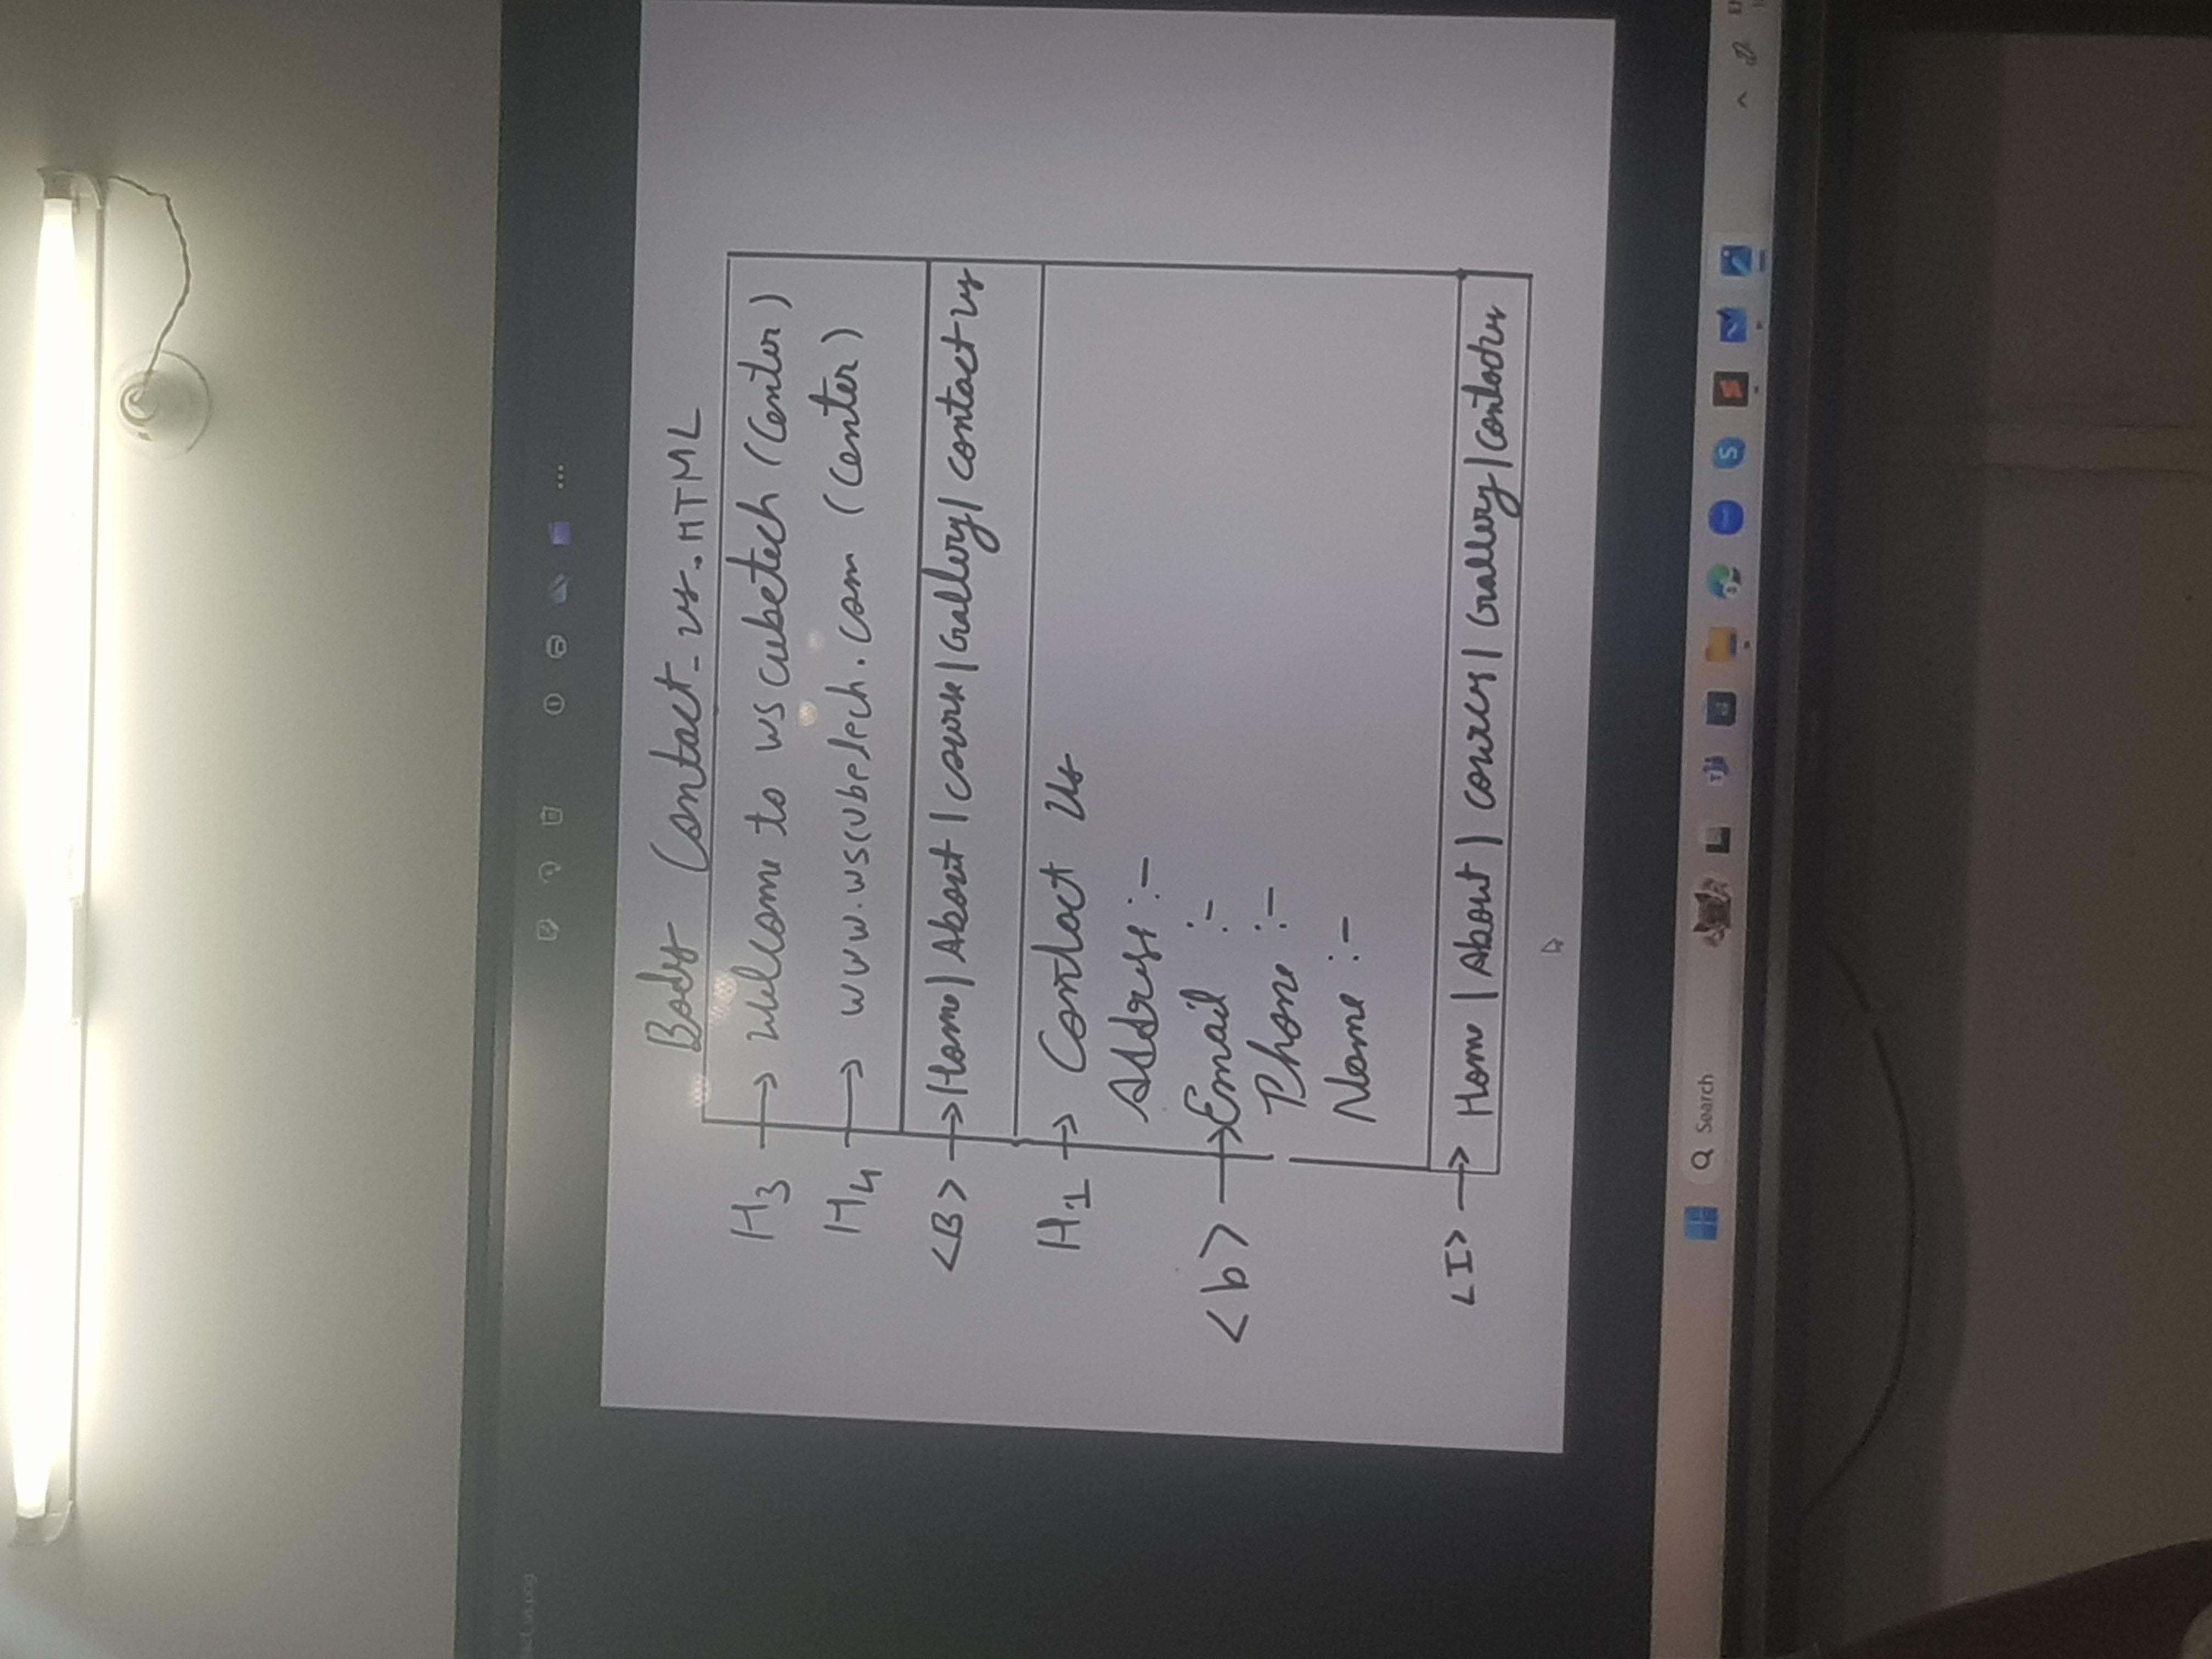 Body Contact_us.HTML
H3 → Welcome to wscubetech (Center)
H4 → www.wscubetech.com (Center)
<B> → Home | About | course | Gallery | contact us
H1 → Contact Us
Address :-
<b> → Email :-
Phone :-
Name :-
<I> → Home | About | courses | Gallery | Contactus
Search